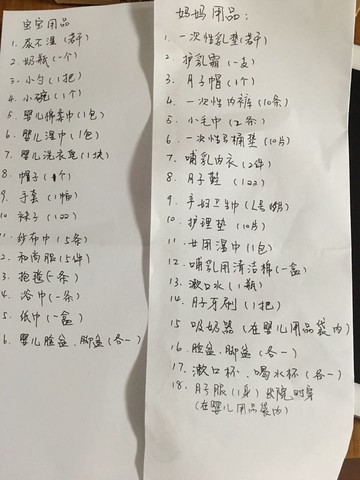 宝宝用品
1. 尿不湿(若干)
2. 奶瓶(一个)
3. 小勺(1把)
4. 小碗(1个)
5. 婴儿棉柔巾(1包)
6. 婴儿湿巾(1包)
7. 婴儿洗衣皂(1块)
8. 帽子(1个)
9. 手套(1
10. 袜子(1双)
11. 纱布巾(5条)
2. 和尚服(5件)
3. 抱毯(一条)
4. 浴巾(一条)
5. 纸巾(一盒)
6. 婴儿脸盆、脚盆(各一)
妈妈用品:
1. 一次性乳垫(若干)
2. 护乳霜(一支)
3. 月子帽(1个)
4. 一次性内裤(10条)
5. 小毛巾(2条)
6. 一次性马桶垫(10片)
7. 哺乳内衣(2件)
8. 月子鞋(1双)
9. 孕妇卫生巾(L号
10. 护理垫(10片)
11. 女用湿巾(1包)
12. 哺乳用清洁棉(一盒)
13. 漱口水(1瓶)
14. 月子牙刷(1把)
15. 吸奶器(在婴儿用品袋内)
16. 脸盆、脚盆(各一)
17. 漱口杯、喝水杯(各一)
18. 月子服(1身)出院时穿
(在婴儿用品袋内)